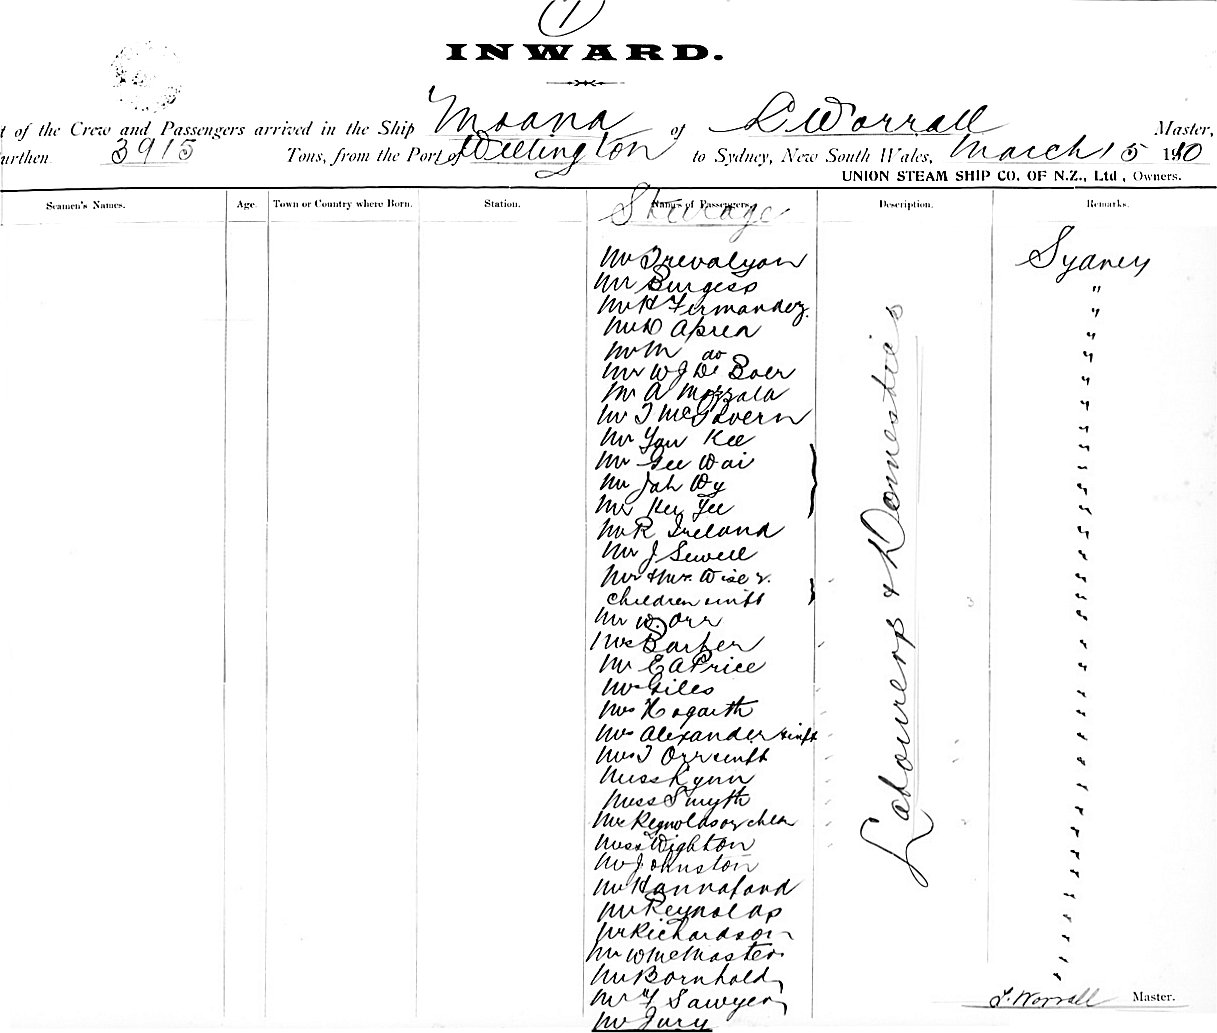 (1)
INWARD.
t of the Crew and Passengers arrived in the Ship Moana of L Worrall Master,
urthen 3915 Tons, from the Port of Wellington to Sydney, New South Wales, March 15 1910
UNION STEAM SHIP CO. OF N.Z., Ltd, Owners.
Seamen's Names. Age. Town or Country where Born. Station. Names of Passengers. Description. Remarks.
Steerage
Mr Trevalyon Sydney
Mr Burgess "
Mr H Fermandez "
Mr D Aprea "
Mr M do "
Mr W J De Boer "
Mr A Mozzala "
Mr T McGovern "
Mr You Kee "
Mr Gee Wai "
Mr Jah Wy "
Mr Key Yee "
Mr R Ireland "
Mr J Sewell "
Mr & Mrs Wise 2
children & inft "
Mr W. Orr "
Mrs Barber "
Mr E A Price "
Mr Giles "
Mrs Hogarth "
Mrs Alexander & inft "
Mrs T Orr & inft "
Miss Lynn "
Miss Smyth "
Mrs Reynolds or 2 chldn "
Miss Wighton "
Mr Johnston "
Mr Hannaford "
Mr Reynolds "
Mr Richardson "
Mr W McMaster "
Mr Bornhold "
Mr F Sawyer
Mr Jury
Labourers & Domestics
L. Worrall Master.